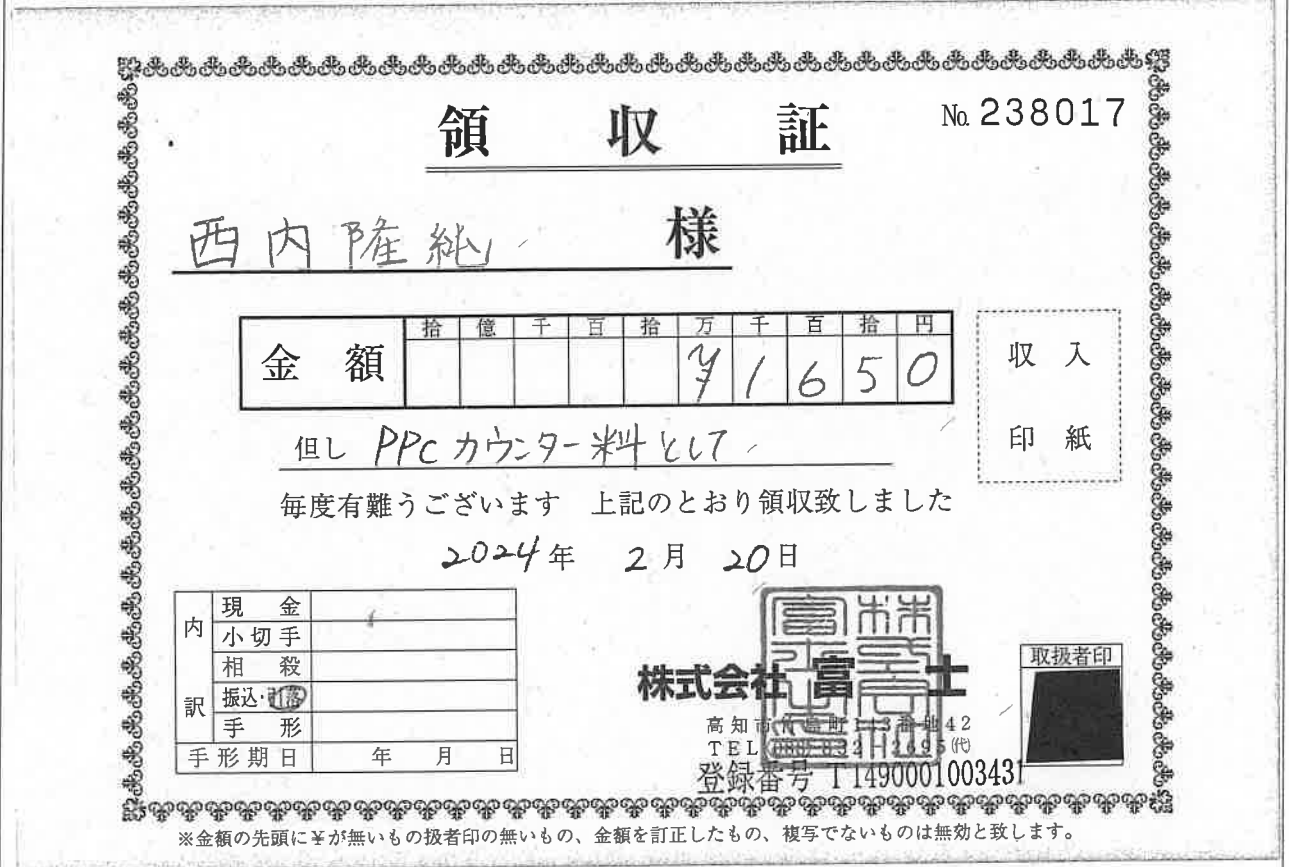 領収証
No. 238017
西内隆純 様
金額
拾 億 千 百 拾 万 千 百 拾 円
¥1650
収入
印紙
但し PPCカウンター料として
毎度有難うございます 上記のとおり領収致しました
2024年 2月 20日
内訳
現金
小切手
相殺
振込・引落
手形
手形期日 年 月 日
株式会社 富士
高知市 町113番地42
TEL(088)832-2695(代)
登録番号 T1490001003431
取扱者印
※金額の先頭に¥が無いもの扱者印の無いもの、金額を訂正したもの、複写でないものは無効と致します。